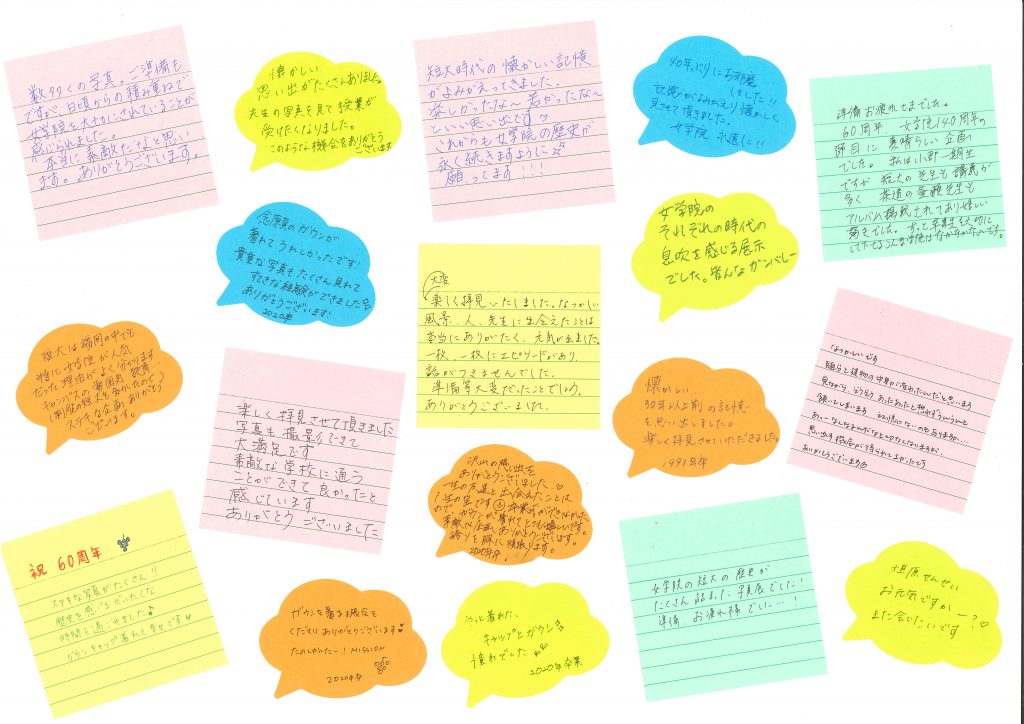 数多くの写真。ご準備も
ですが、日頃からの積み重ねで
女学院を大切にされていることが
感じられました。
本当に素敵だなと思い
ます。ありがとうございます。
懐かしい
思い出がたくさんありました。
先生の写真を見て授業が
受けたくなりました。
このような機会をありがとう
ございます
短大時代の懐かしい記憶
がよみがえってきました。
楽しかったな〜 若かったな〜
といい思い出です♡
これからも女学院の歴史が
永く続きますように
願ってます!!!
40年ぶりにお邪魔
しました!!
記憶がよみがえり懐かしく
見させて頂きました。
女学院 永遠に!!
準備お疲れさまでした。
60周年、女学院140周年の
節目に素晴らしい企画
でした。私は小野一期生
ですが 短大の先生も講義が
多く 茶道の 先生も
アルバム掲載されてあり嬉しい
驚きでした。ずっと卒業生を大切に
して下さるこんな学院はなかなかないです。
念願のガウンが
着れてうれしかったです!
貴重な写真もたくさん見れて
すてきな経験ができました
ありがとうございます!
2020卒
女学院の
それぞれの時代の
息吹を感じる展示
でした。皆んなガンバレー
大変
楽しく拝見いたしました。なつかしい
風景、人、先生に出会えたことは
本当にありがたく、元気が出ました。
一枚、一枚にエピソードがあり、
話がつきませんでした。
準備等大変だったことでしょう。
ありがとうございました。
短大は福岡の中でも
特に女学院が人気
だった理由がよく分かります
キャンパスの雰囲気、教育
ステキな企画、ありがとう
ございます。
楽しく拝見させて頂きました
写真も撮影できて
大満足です
素敵な学校に通う
ことができて良かったと
感じています
ありがとうございました
懐かしい…
30年以上前の記憶
を思い出しました。
楽しく拝見させていただきました。
1991年卒
なつかしいです
随分と建物の中身が変わったんだと思います
見ながら、そうそう、あったあったと思わずうんうんと
頷いてしまいます
思い出す機会が得られてよかったです
ありがとうございます
沢山の思い出を
ありがとうございました♡
一生の友達と出会えたことは
人生の宝です 卒業式ができなかった
ので、ガウンが着れてとても嬉しいです。
素敵な企画、ありがとうございます。
誇りを胸に頑張ります。
2020年卒
祝 60周年
ステキな写真がたくさん!!
歴史を感じるぜいたくな
時間を過ごせました♪
ガウンキャップ着れて幸せです♥
ガウンを着る機会を
くださりありがとうございます♥
たのしかったー! MISSION
2020年卒
やっと着れた、
キャップとガウン
憧れでした
2020年卒業
女学院の短大の歴史が
たくさん詰まった写真展でした!
準備、お疲れ様でした…!
せんせい
お元気ですかー?♡
また会いたいです